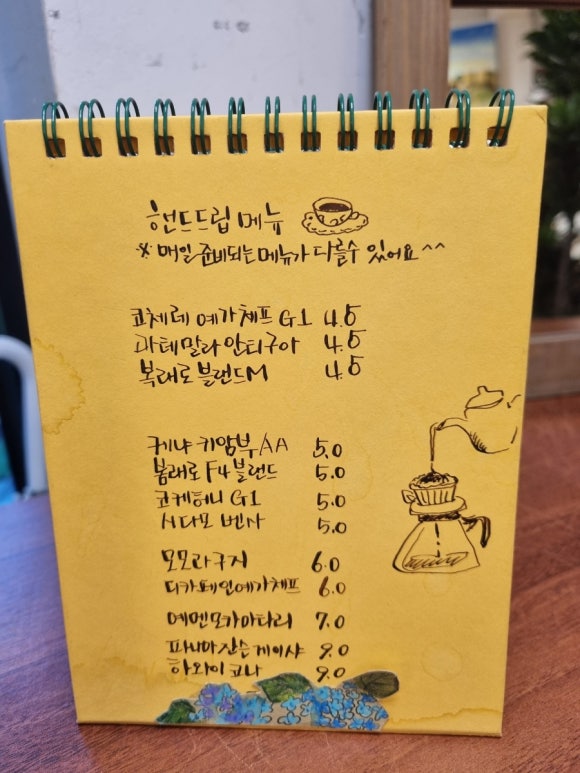 핸드드립 메뉴
※ 매일 준비되는 메뉴가 다를수 있어요 ^^
코체레 예가체프 G1 4.5
과테말라 안티구아 4.5
봄래로 블랜드M 4.5
케냐 키암부 AA 5.0
봄래로 F4 블랜드 5.0
코케허니 G1 5.0
시다모 벤사 5.0
모모라구지 6.0
디카페인예가체프 6.0
예멘모카마타리 7.0
파나마잔슨게이샤 9.0
하와이 코나 9.0